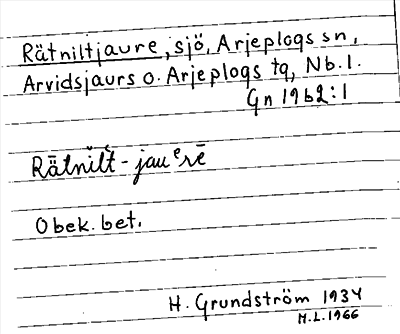 Rätniltjaure, sjö, Arjeplogs sn,
Arvidsjaurs o. Arjeplogs tq, Nb.l.
Gn 19b2:1
Rätnilt-jauᵉrē
Obek. bet.
H. Grundström 1934
H.L. 1966